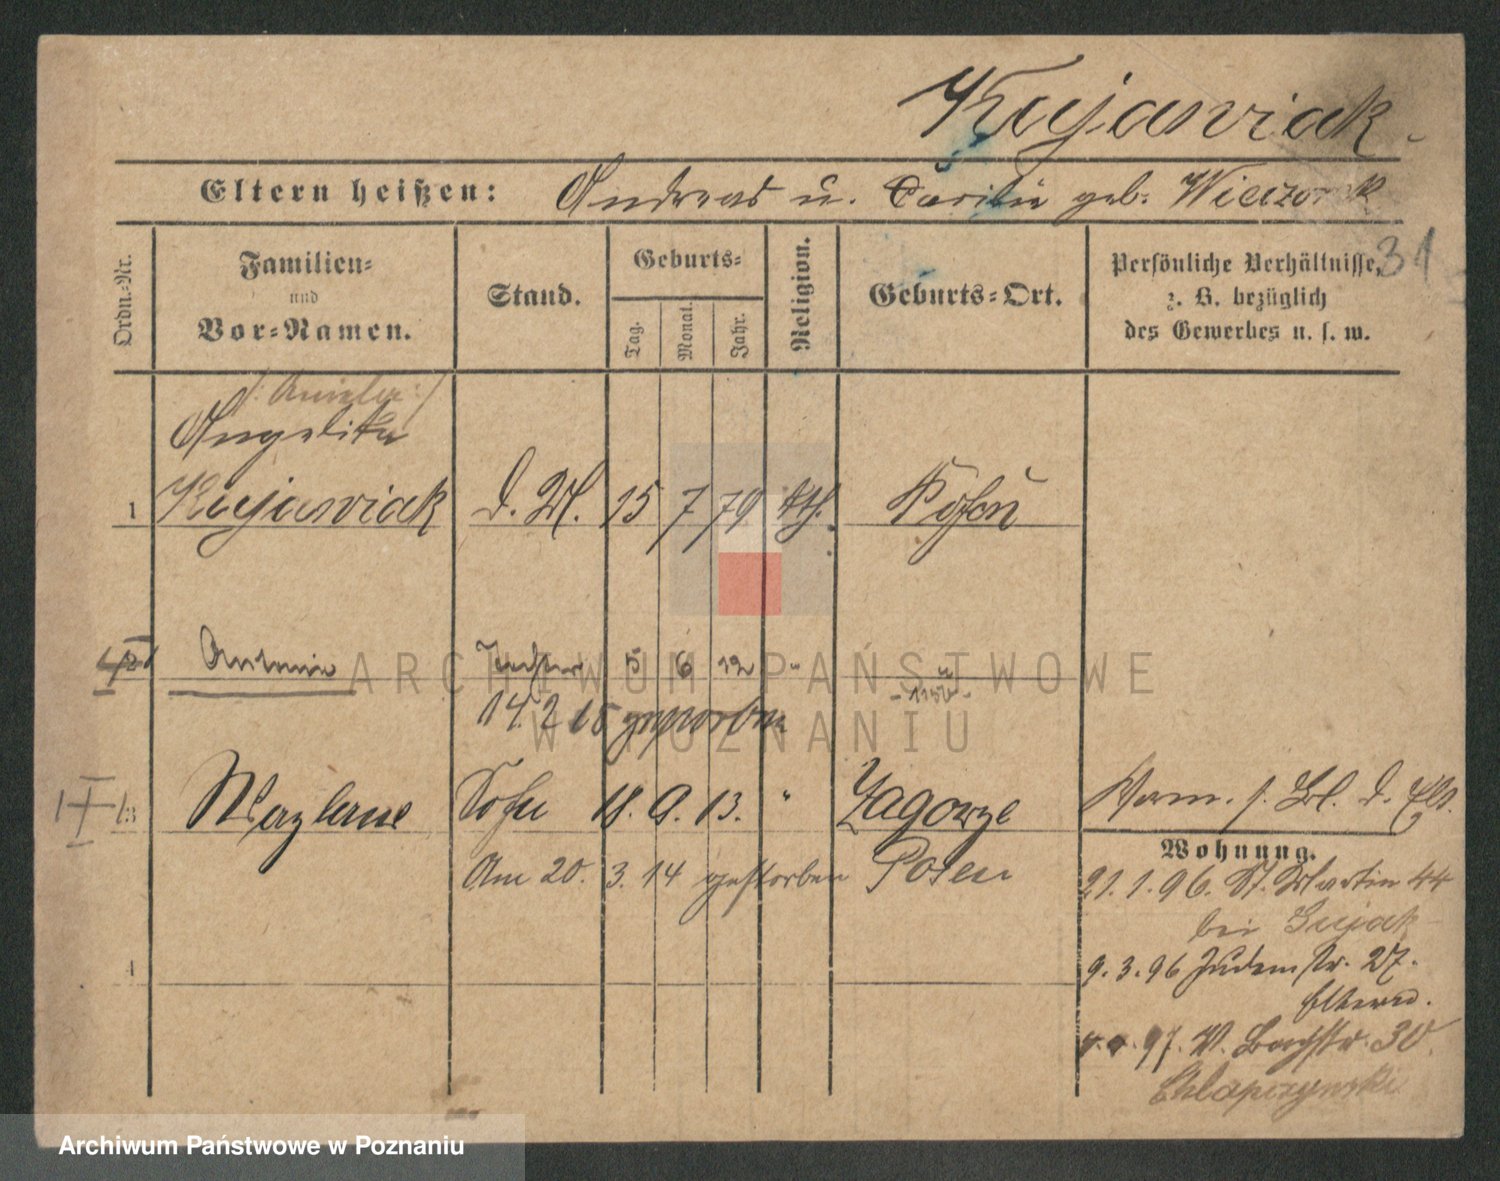 Kujawiak
Eltern heißen: Andreas u. Cacilie geb. Wieczorek
31
Ordn.-Nr.
Familien-
und
Vor-Namen.
Stand.
Geburts-
Tag.
Monat.
Jahr.
Religion.
Geburts-Ort.
Persönliche Verhältnisse,
z. B. bezüglich
des Gewerbes u. s. w.
Angelika
1 Kujawiak d. M. 15 7 79 kth. Posen
2 Antonie Tochter 5 6 12 "
14. 2 15 gestorben
3 Sohn 18. 9. 13. " Zagorze
Am 20. 3. 14 gestorben Posen
Wohnung.
21. 1. 96. St. Martin 44
bei
9. 3. 96 Judenstr. 27.
Eltern.
97. W. Bachstr. 30
4
ARCHIWUM PAŃSTWOWE
W POZNANIU
Archiwum Państwowe w Poznaniu